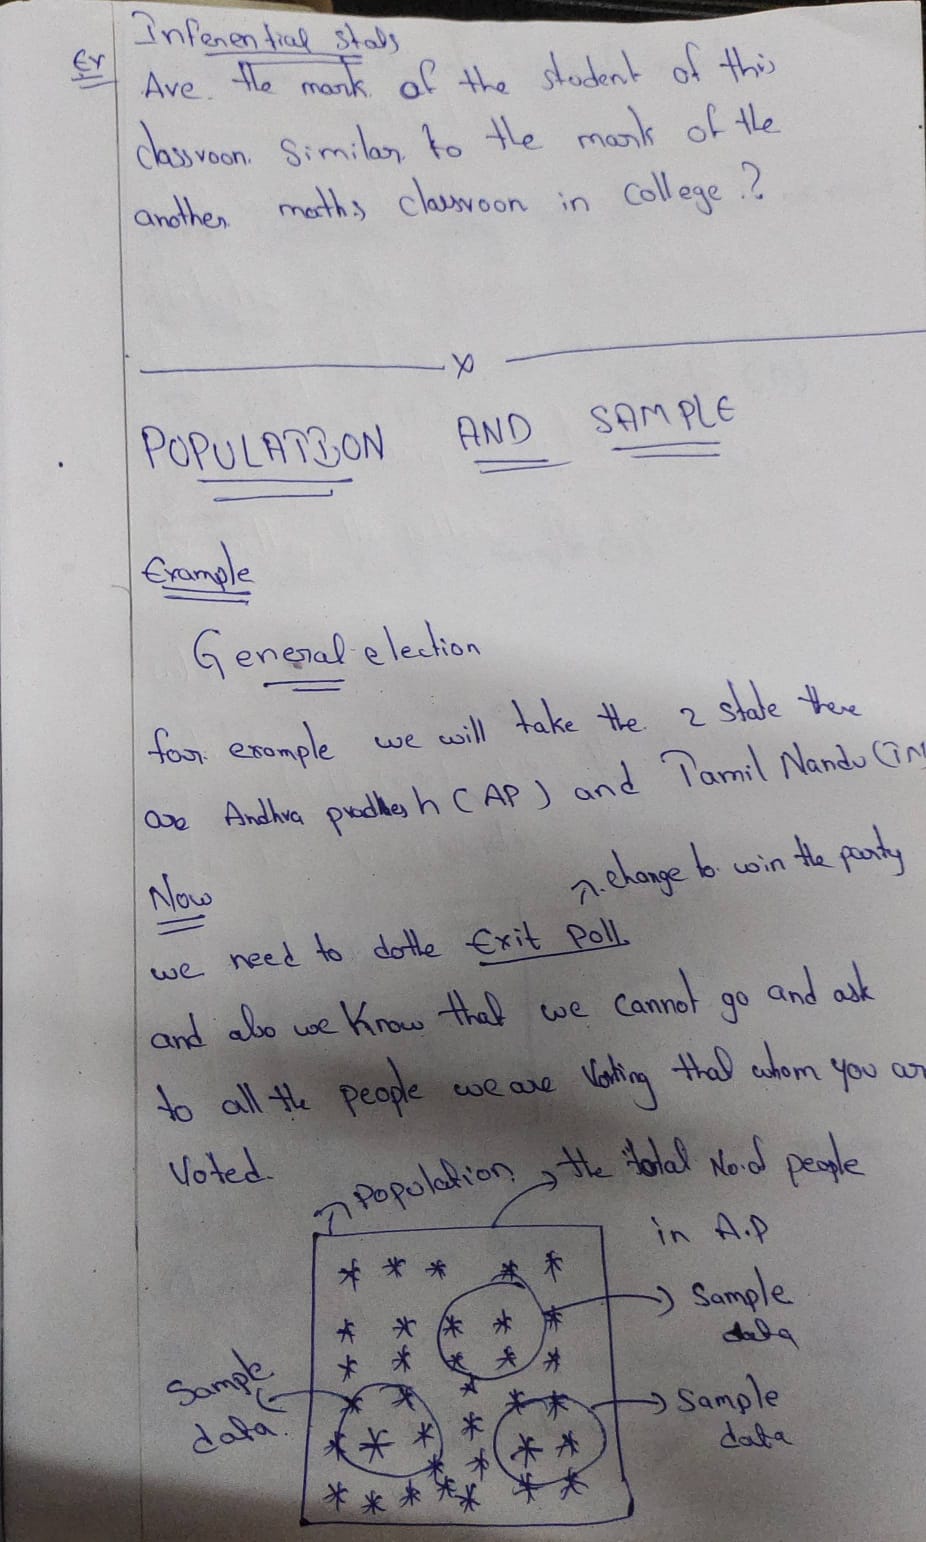 Inferential stats
Ex
Are the mark of the student of this
classroon similar to the mark of the
another maths classroon in college?
x
POPULATION AND SAMPLE
Example
General election
for example we will take the 2 state there
are Andhra pradhesh (AP) and Tamil Nandu (TN
Now
change to win the party
we need to do the Exit poll
and also we know that we cannot go and ask
to all the people we are Voting that whom you ar
Voted.
population
the total No.of people
in A.P
Sample
data
Sample
data.
Sample
data